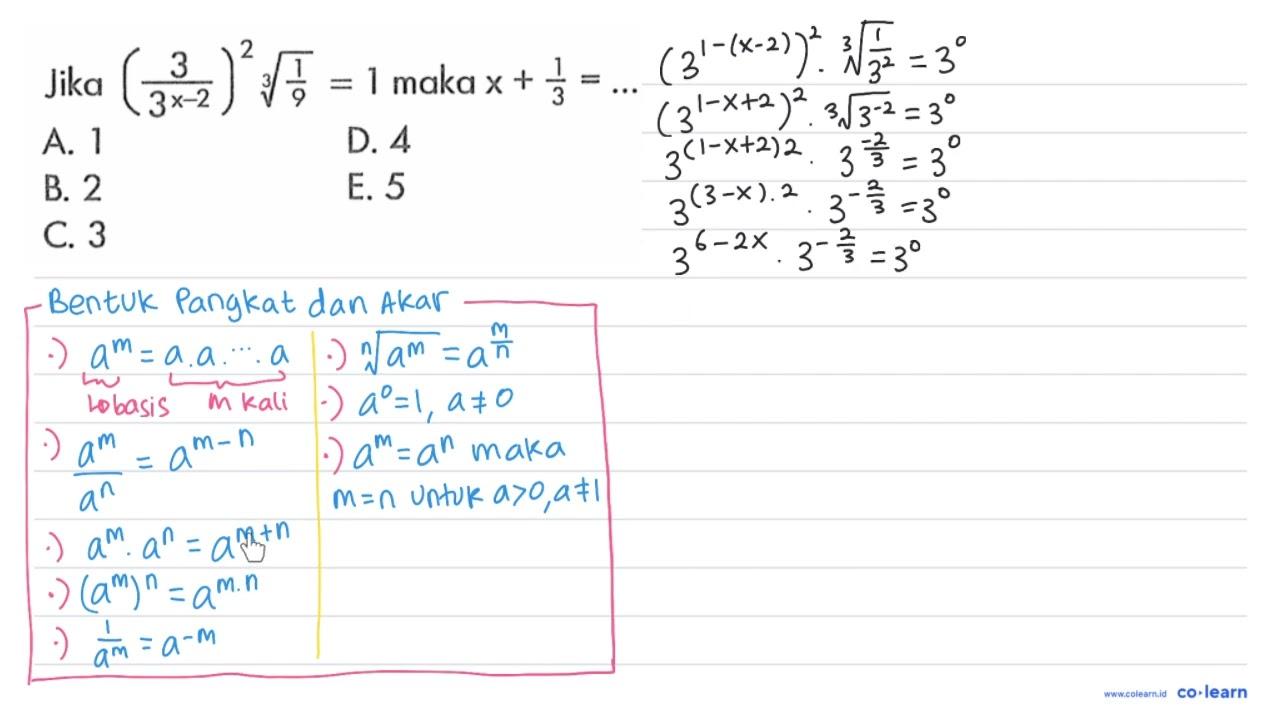 Jika (3/3^(x-2))^2 ∛(1/9) = 1 maka x + 1/3 = ...
A. 1 D. 4
B. 2 E. 5
C. 3
(3^(1-(x-2)))^2 . ∛(1/3^2) = 3^0
(3^(1-x+2))^2 . ∛(3^-2) = 3^0
3^((1-x+2)2) . 3^(-2/3) = 3^0
3^((3-x).2) . 3^(-2/3) = 3^0
3^(6-2x) . 3^(-2/3) = 3^0
Bentuk Pangkat dan Akar
·) a^m = a.a. ... .a
↳ basis m kali
·) a^m/a^n = a^(m-n)
·) a^m . a^n = a^(m+n)
·) (a^m)^n = a^(m.n)
·) 1/a^m = a^-m
·) ⁿ√(a^m) = a^(m/n)
·) a^0 = 1, a ≠ 0
·) a^m = a^n maka
m = n untuk a>0, a≠1
www.colearn.id co·learn